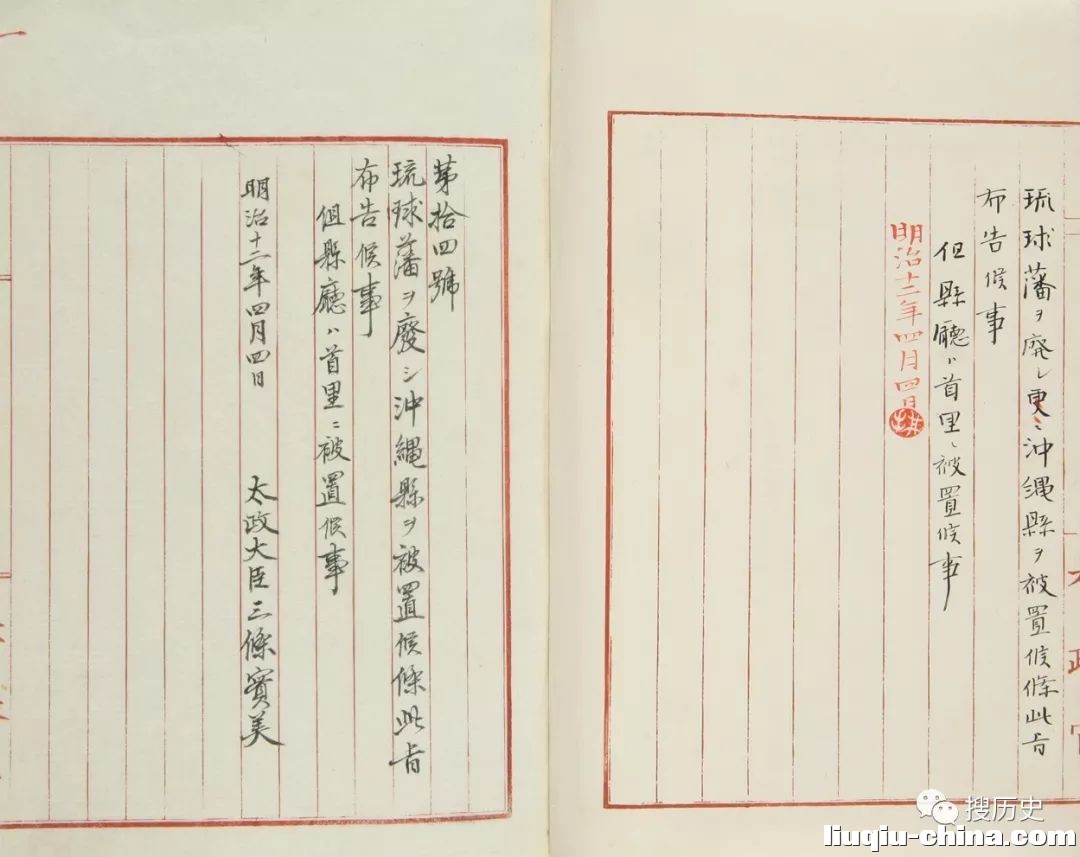 琉球藩ヲ廃シ更ニ沖縄縣ヲ被置候條此旨
布告候事
但縣廳ハ首里ニ被置候事
明治十二年四月四日
太政官
第拾四號
琉球藩ヲ廢シ沖縄縣ヲ被置候條此旨
布告候事
但縣廳ハ首里ニ被置候事
明治十二年四月四日 太政大臣三條實美
搜历史
liuqiu-china.com